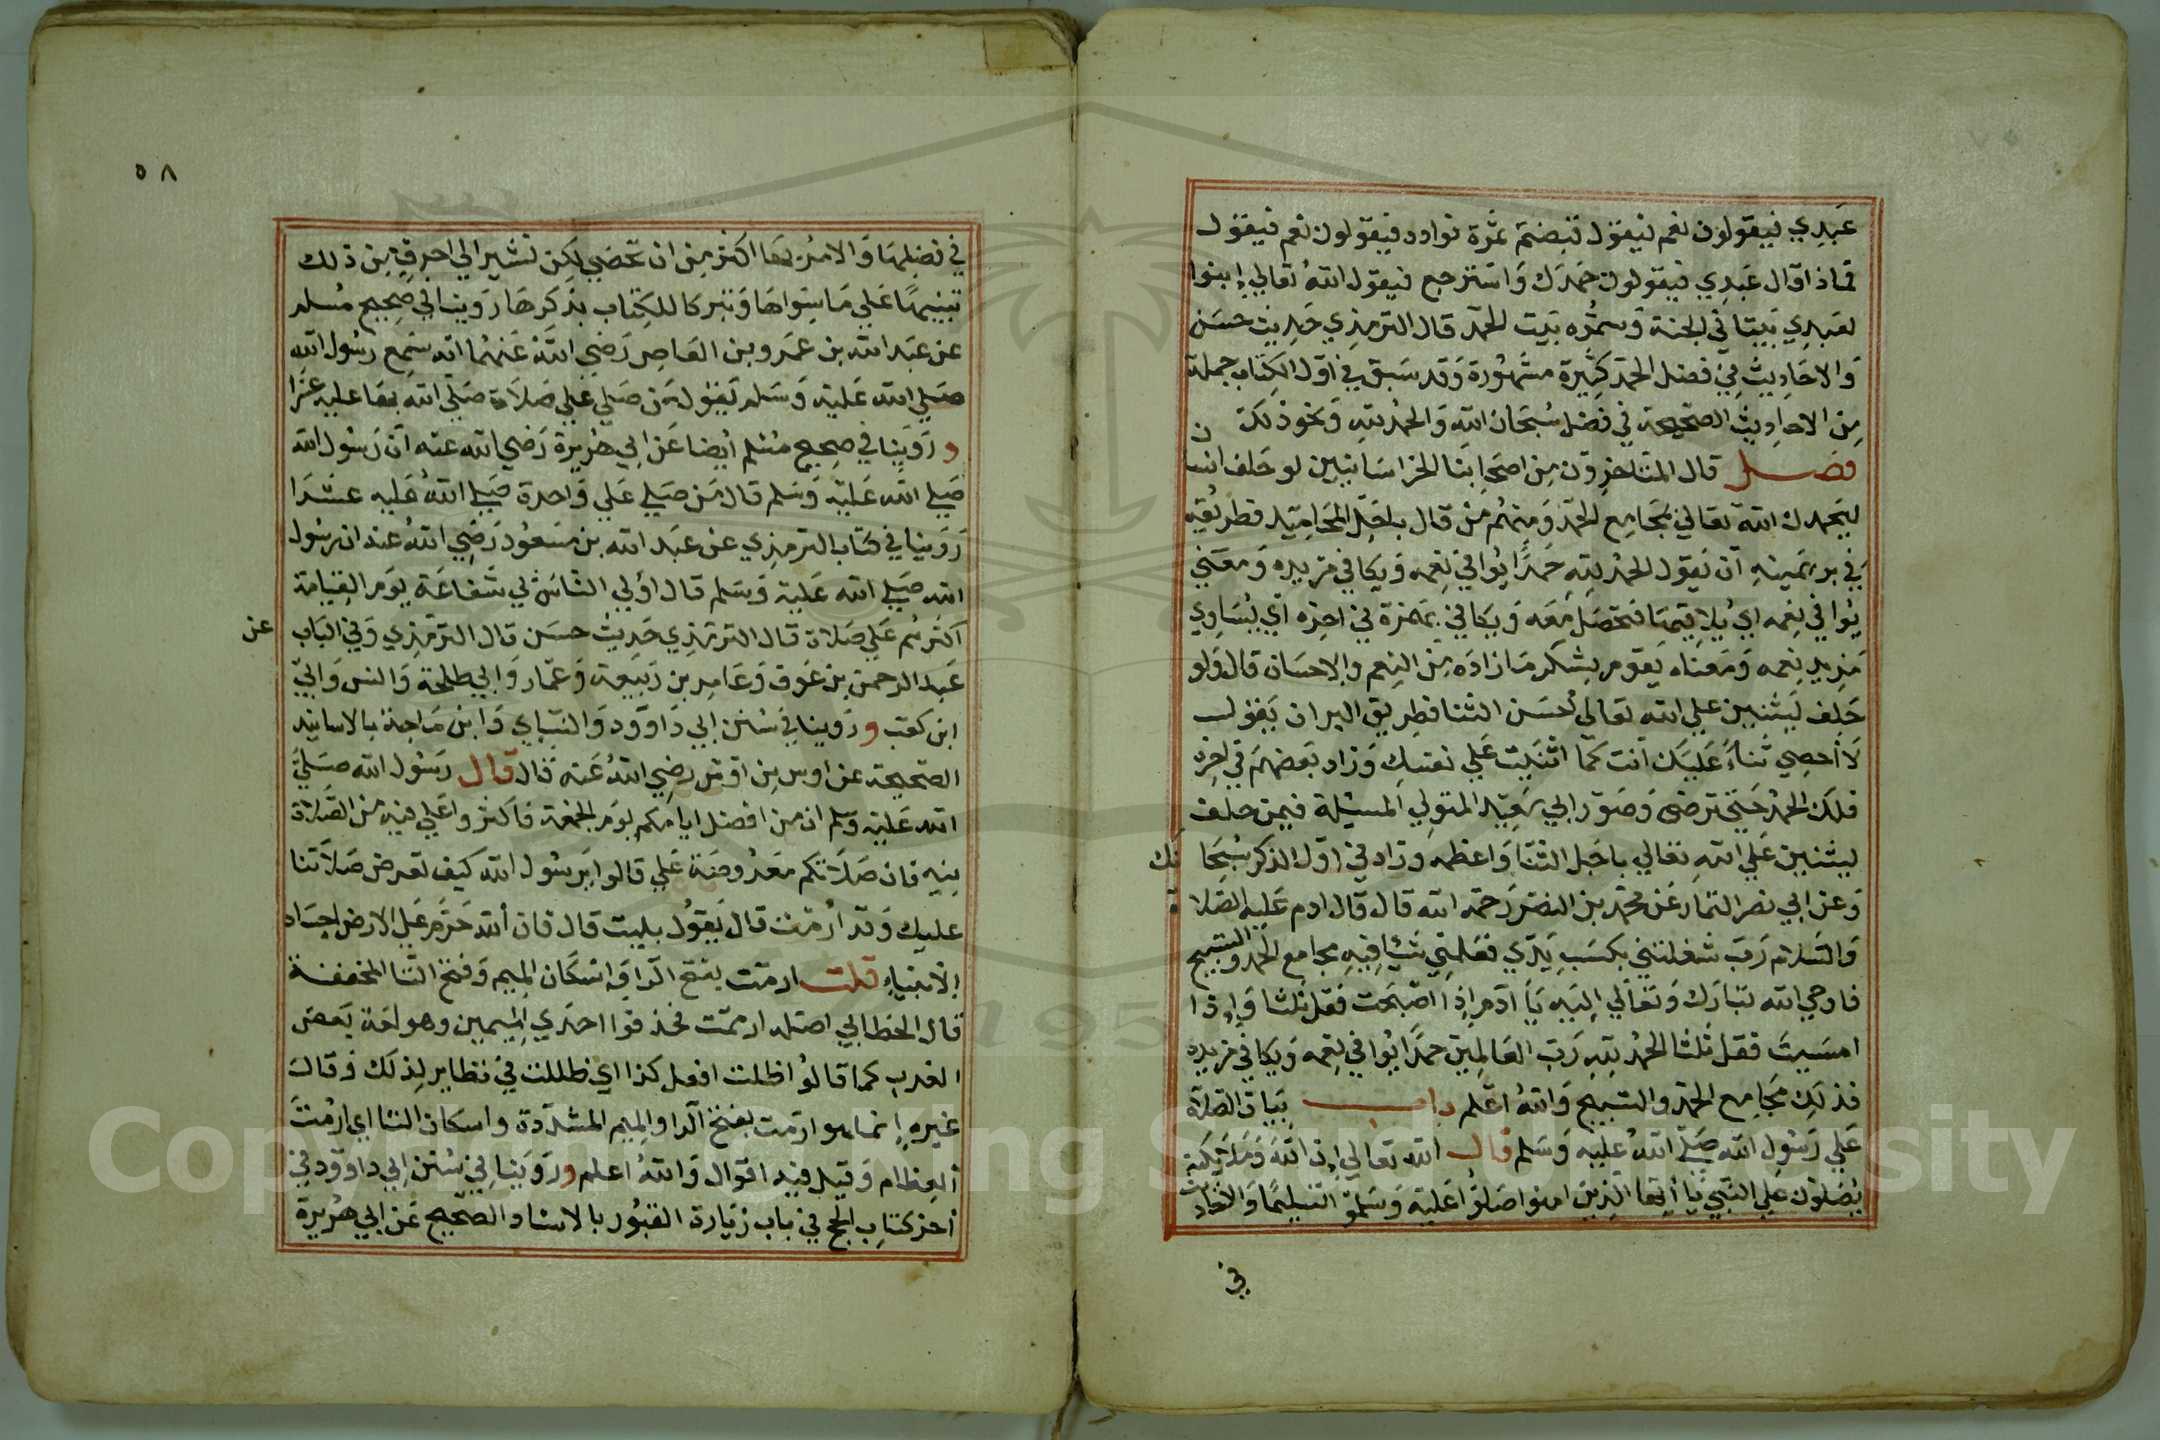 عَبدي فيقولون نعم فيقول قبضتم ثمرة فواده فيقولون نعم فيقول
فماذا قال عبدي فيقولون حمدك واسترجع فيقول الله تعالي ابنوا
لعبدي بيتا في الجنة وسموه بيت الحمد قال الترمذي حديث حسن
والاحاديث في فضل الحمد كثيرة مشهورة وقد سبق في اول الكتاب جملة
من الاحاديث الصحيحة في فضل سبحان الله والحمد لله ونحو ذلك
فصل قال المتاخرون من اصحابنا الخراسانيين لو حلف انسان
ليحمدن الله تعالي بمجامع الحمد ومنهم من قال باجل المحاميد فطريقه
في بر يمينه ان يقول الحمد لله حمدا يوافي نعمه ويكافي مزيده ومعني
يوافي نعمه اي يلاقيها فتحصل معه ويكافي بهمزة في اخره اي يساوي
مزيد نعمه ومعناه يقوم بشكر ما زاده من النعم والاحسان قال ولو
حلف ليثنين علي الله تعالي احسن الثنا فطريق البر ان يقول
لا احصي ثناء عليك انت كما اثنيت علي نفسك وزاد بعضهم في اخره
فلك الحمد حتي ترضي وصور ابي سعيد المتولي المسيلة فيمن حلف
ليثنين علي الله تعالي باجل الثنا واعظمه وزاد في اول الذكر سبحانك
وعن ابي نصر التمار عن محمد بن النضر رحمه الله قال قال ادم عليه الصلاة
والسلام رب شغلتني بكسب يدي فعلمني شيا فيه مجامع الحمد والتسبيح
فاوحي الله تبارك وتعالي اليه يا ادم اذا اصبحت فقل ثلثا واذا
امسيت فقل ثلثا الحمد لله رب العالمين حمدا يوافي نعمه ويكافي مزيده
فذلك مجامع الحمد والتسبيح والله اعلم باب بيان الصلاة
علي رسول الله صلي الله عليه وسلم قال الله تعالي ان الله وملايكته
يصلون علي النبي يا ايها الذين امنوا صلوا عليه وسلموا تسليما والاحاديث
في
٥٨
في فضلها والامر بها اكثر من ان تحصي لكن نشير الي احرف من ذلك
تنبيها علي ما سواها وتبركا للكتاب بذكرها روينا في صحيح مسلم
عن عبد الله بن عمرو بن العاص رضي الله عنهما انه سمع رسول الله
صلي الله عليه وسلم يقول من صلي علي صلاة صلي الله بها عليه عشرا
وروينا في صحيح مسلم ايضا عن ابي هريرة رضي الله عنه ان رسول الله
صلي الله عليه وسلم قال من صلي علي واحدة صلي الله عليه عشرا
روينا في كتاب الترمذي عن عبد الله بن مسعود رضي الله عنه ان رسول
الله صلي الله عليه وسلم قال اولي الناس بي شفاعة يوم القيامة
اكثرهم علي صلاة قال الترمذي حديث حسن قال الترمذي وفي الباب عن
عبد الرحمن بن عوف وعامر بن ربيعة وعمار وابي طلحة وانس وابي
ابن كعب وروينا في سنن ابي داوود والنساي وابن ماجة بالاسانيد
الصحيحة عن اوس بن اوس رضي الله عنه قال قال رسول الله صلي
الله عليه وسلم ان من افضل ايامكم يوم الجمعة فاكثروا علي فيه من الصلاة
فيه فان صلاتكم معروضة علي قالوا يرسول الله كيف تعرض صلاتنا
عليك وقد ارمت قال يقول بليت قال فان الله حرم علي الارض اجساد
الانبياء قلت ارمت بفتح الرا واسكان الميم وفتح التا المخففة
قال الخطابي اصله ارممت فحذفوا احدي الميمين وهو لغة بعض
العرب كما قالوا ظلت افعل كذا اي ظللت في نظاير لذلك وقال
غيره انما هو ارمت بفتح الرا والميم المشددة واسكان التا اي ارمت
العظام وقيل فيه اقوال والله اعلم وروينا في سنن ابي داوود في
اخر كتاب الحج في باب زيارة القبور بالاسناد الصحيح عن ابي هريرة
Copyright © King Saud University
1957